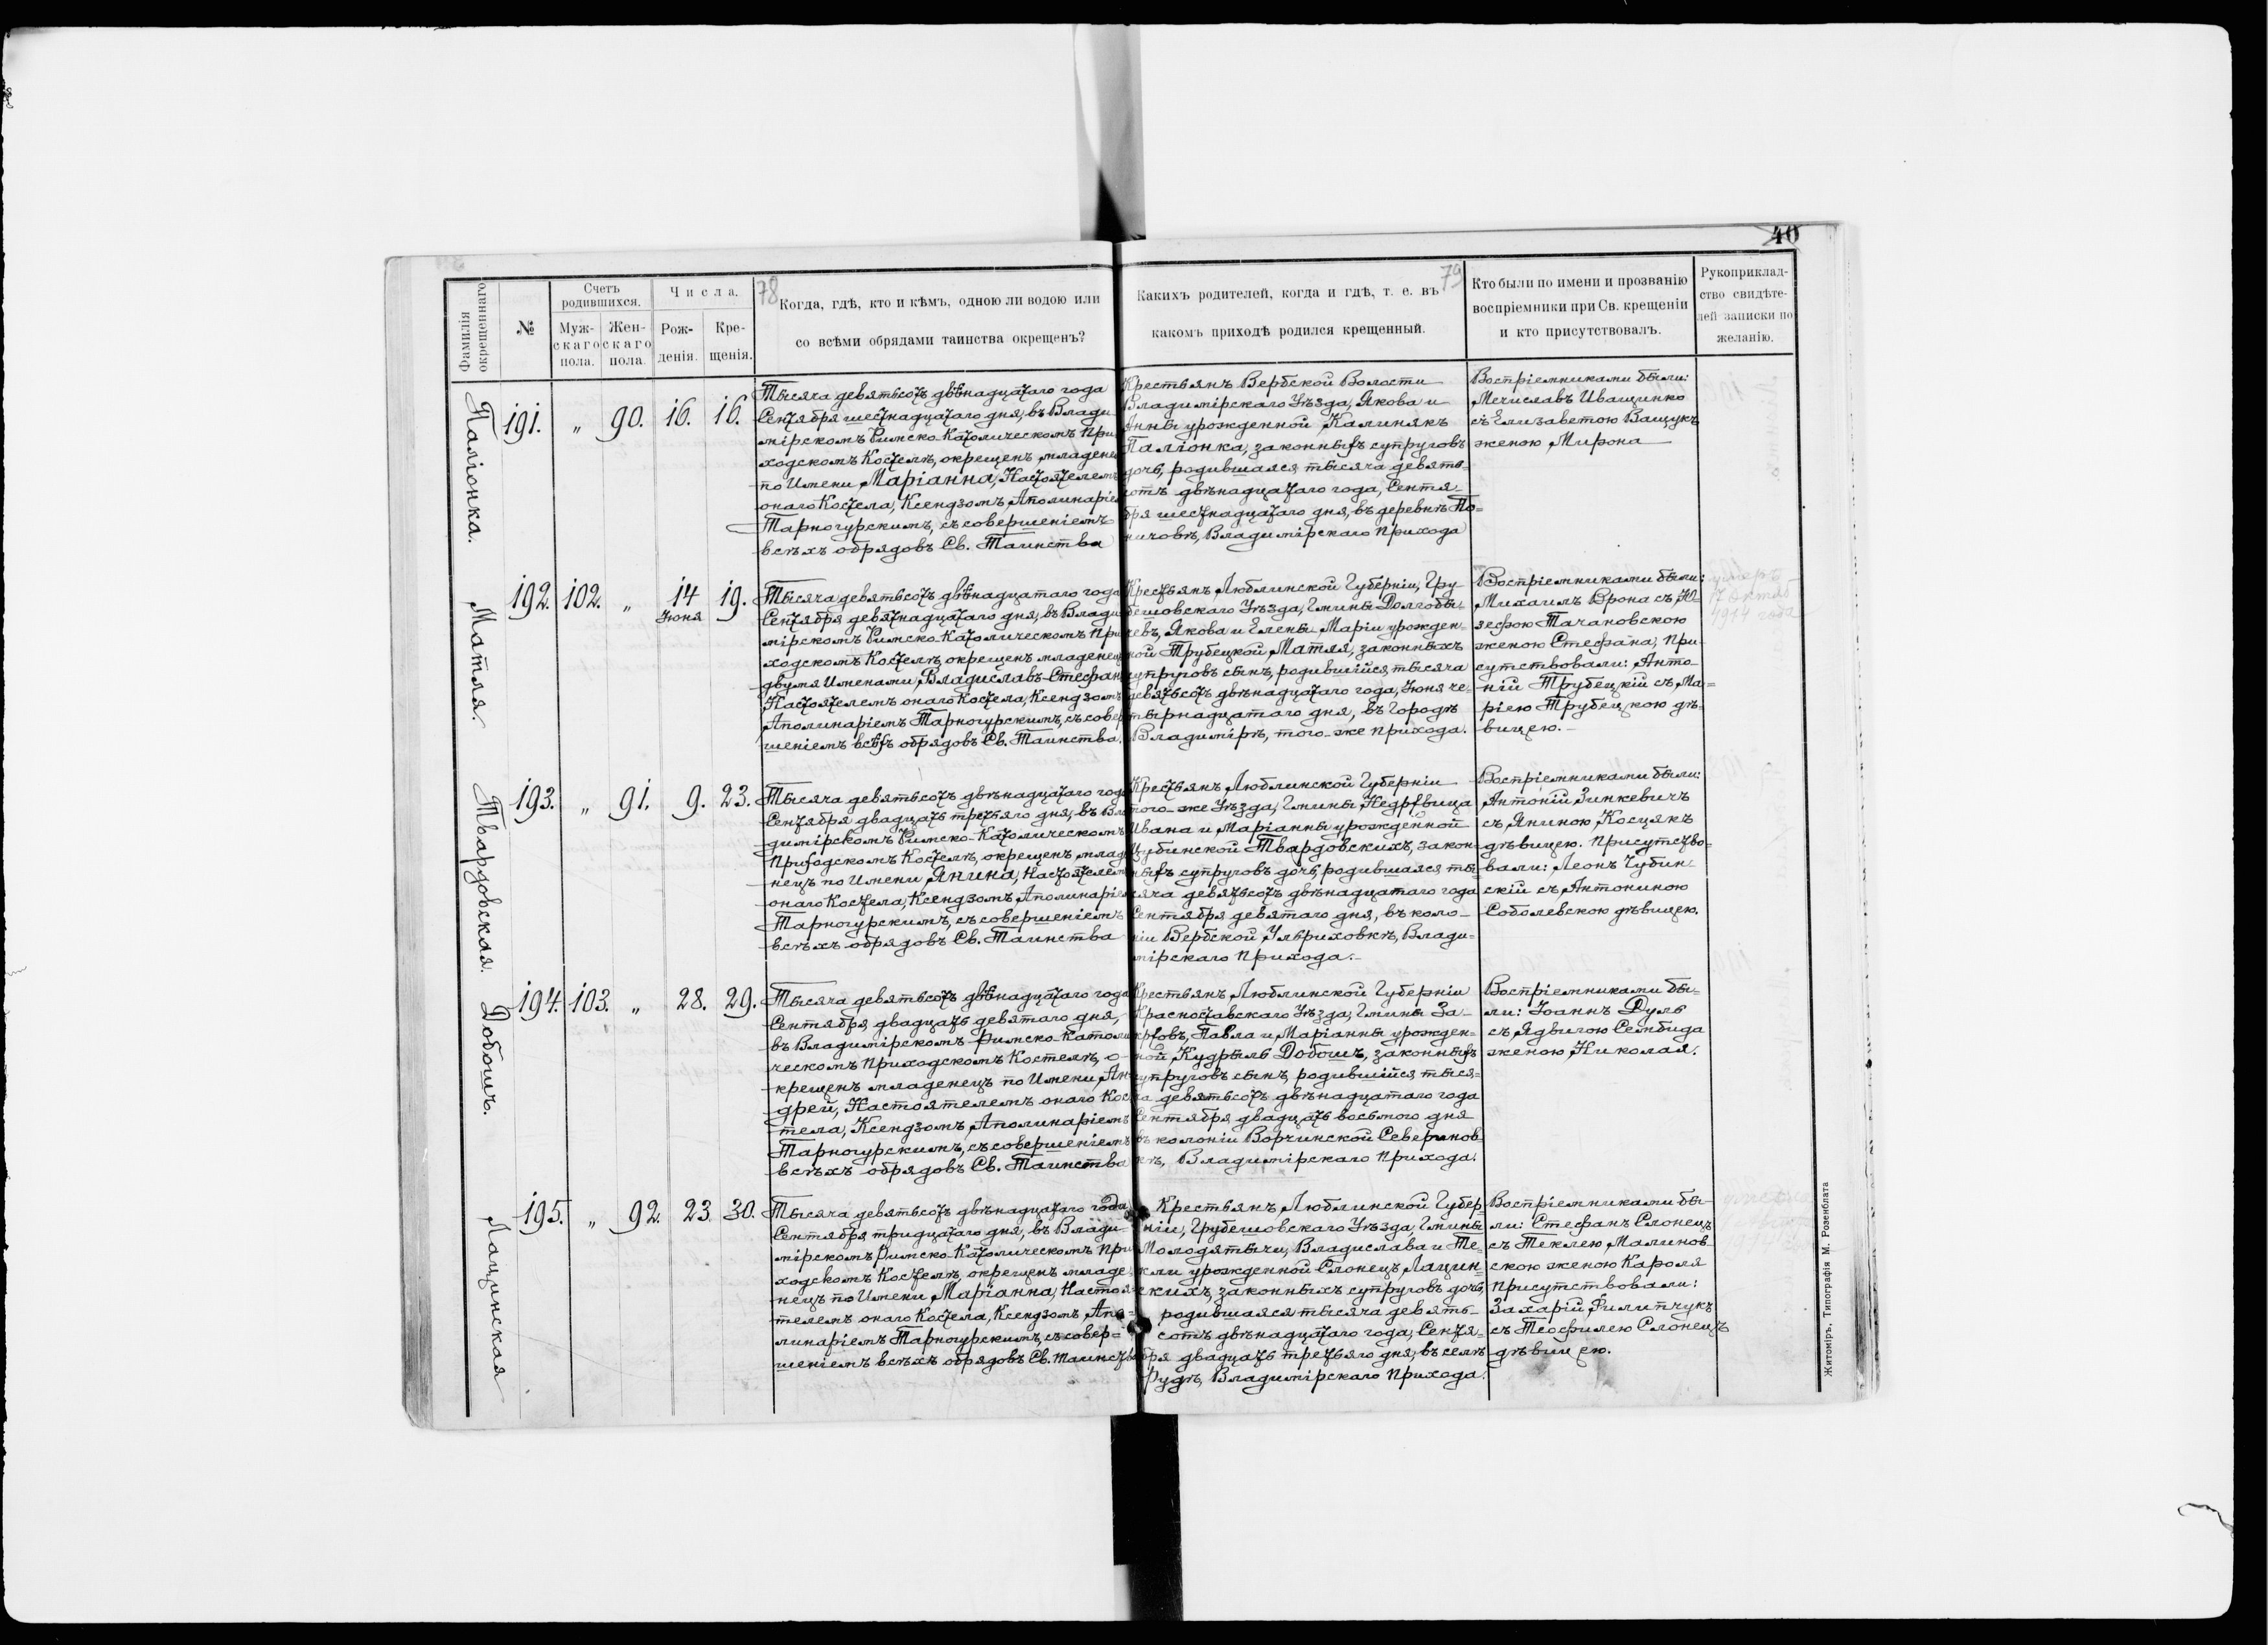 40
78
79
Фамилія окрещеннаго
№
Счетъ родившихся.
Муж-скаго пола.
Жен-скаго пола.
Числа.
Рож-денія.
Кре-щенія.
Когда, гдѣ, кто и кѣмъ, одною ли водою или
со всѣми обрядами таинства окрещенъ?
Какихъ родителей, когда и гдѣ, т. е. въ
какомъ приходѣ родился крещенный.
Кто были по имени и прозванію
воспріемники при Св. крещеніи
и кто присутствовалъ.
Рукоприклад-
ство свидѣте-
лей записки по
желанію.
Паліонка.
191. „ 90. 16. 16.
Тысяча девятьсотъ двѣнадцатаго года
Сентября шестнадцатаго дня, въ Влади
мірскомъ Римско-Католическомъ При
ходскомъ Костелѣ, окрещенъ младене
по Имени Маріанна, Настоятелемъ
онаго Костела, Ксендзомъ Аполинаріе
Тарногурскимъ, съ совершеніемъ
всѣхъ обрядовъ Св. Таинства
Крестьянъ Вербской Волости
Владимірскаго Уѣзда, Якова и
Анны урожденной Калинякъ
Паліонка, законныхъ супруговъ
дочь, родившаяся тысяча девять-
сотъ двѣнадцатаго года, Сентя-
бря шестнадцатаго дня, въ деревнѣ По=
ничовѣ, Владимірскаго Прихода
Воспріемниками были:
Мечиславъ Иващинко
съ Елизаветою Ващукъ
женою Мирона
Матля.
192. 102. „ 14 Іюня 19.
Тысяча девятьсотъ двѣнадцатаго года
Сентября девятнадцатаго дня, въ Влади
мірскомъ Римско-Католическомъ При
ходскомъ Костелѣ, окрещенъ младенецъ
двумя Именами, Владиславъ-Стефан
Настоятелемъ онаго Костела, Ксендзомъ
Аполинаріемъ Тарногурскимъ, съ совер
шеніемъ всѣхъ обрядовъ Св. Таинства.
Крестьянъ Люблинской Губерніи, Гру
бешовскаго Уѣзда, Гмины Долгобы-
чевъ, Якова и Елены Маріи урожден-
ной Трубецкой, Матля, законныхъ
супруговъ сынъ, родившійся тысяча
девятьсотъ двѣнадцатаго года, Іюня че-
тырнадцатаго дня, въ Городѣ
Владимірѣ, того-же прихода.
Воспріемниками были:
Михаилъ Врона съ Ю-
зефою Тачановскою
женою Стефана, при-
сутствовали: Анто-
ній Трубецкій съ Ма=
ріею Трубецкою дѣ-
вицею.-
умеръ
17 Октяб
1914 года
Твардовская.
193. „ 91. 9. 23.
Тысяча девятьсотъ двѣнадцатаго года
Сентября двадцать третьяго дня, въ Вла
димірскомъ Римско-Католическомъ
Приходскомъ Костелѣ, окрещенъ младе
нецъ по Имени Янина, Настоятелем
онаго Костела, Ксендзомъ Аполинаріе
Тарногурскимъ, съ совершеніемъ
всѣхъ обрядовъ Св. Таинства
Крестьянъ Люблинской Губерніи
того-же Уѣзда, Гмины Недрхвица
Ивана и Маріанны урожденной
Чубинской Твардовскихъ, закон-
ныхъ супруговъ дочь, родившаяся ты-
сяча девятьсотъ двѣнадцатаго года
Сентября девятаго дня, въ коло-
ніи Вербской Ульриховкѣ, Влади=
мірскаго Прихода.-
Воспріемниками были:
Антоній Зинкевичъ
съ Яниною Косцякъ
дѣвицею. Присутство=
вали: Леонъ Чубин-
скій съ Антониною
Соболевскою дѣвицею.
Добошъ.
194. 103. „ 28. 29.
Тысяча девятьсотъ двѣнадцатаго года
Сентября двадцать девятаго дня,
въ Владимірскомъ Римско-Католи
ческомъ Приходскомъ Костелѣ, о-
крещенъ младенецъ по Имени Ан-
дрей, Настоятелемъ онаго Кос
тела, Ксендзомъ Аполинаріемъ
Тарногурскимъ, съ совершеніемъ
всѣхъ обрядовъ Св. Таинства
Крестьянъ Люблинской Губерніи
Красноставскаго Уѣзда, Гмины За-
кржовъ, Павла и Маріанны урожден=
ной Кудрыль Добошъ, законныхъ
супруговъ сынъ, родившійся тыся=
ча девятьсотъ двѣнадцатаго года
Сентября двадцать восьмого дня
въ колоніи Ворчинской Северинов
кѣ, Владимірскаго Прихода.
Воспріемниками бы-
ли: Іоаннъ Дуль
съ Ядвигою Сембида
женою Николая.
Лащинская
195. „ 92. 23 30.
Тысяча девятьсотъ двѣнадцатаго года
Сентября тридцатаго дня, въ Влади-
мірскомъ Римско-Католическомъ При
ходскомъ Костелѣ, окрещенъ младе-
нецъ по Имени Маріанна, Настоя-
телемъ онаго Костела, Ксендзомъ Апо=
линаріемъ Тарногурскимъ, съ совер=
шеніемъ всѣхъ обрядовъ Св. Таинства
Крестьянъ Люблинской Губер-
ніи, Грубешовскаго Уѣзда, Гмины
Молодятычи, Владислава и Те-
кли урожденной Слонецъ, Лащин-
скихъ, законныхъ супруговъ дочь,
родившаяся тысяча девять-
сотъ двѣнадцатаго года, Сентя-
бря двадцать третьяго дня, въ селѣ
Рудѣ, Владимірскаго Прихода.
Воспріемниками бы-
ли: Стефанъ Слонецъ
съ Теклею Малинов-
скою женою Кароля
Присутствовали:
Захарій Филипчукъ
съ Теофилею Слонецъ
дѣвицею.
Житоміръ, Типографія М. Розенблата